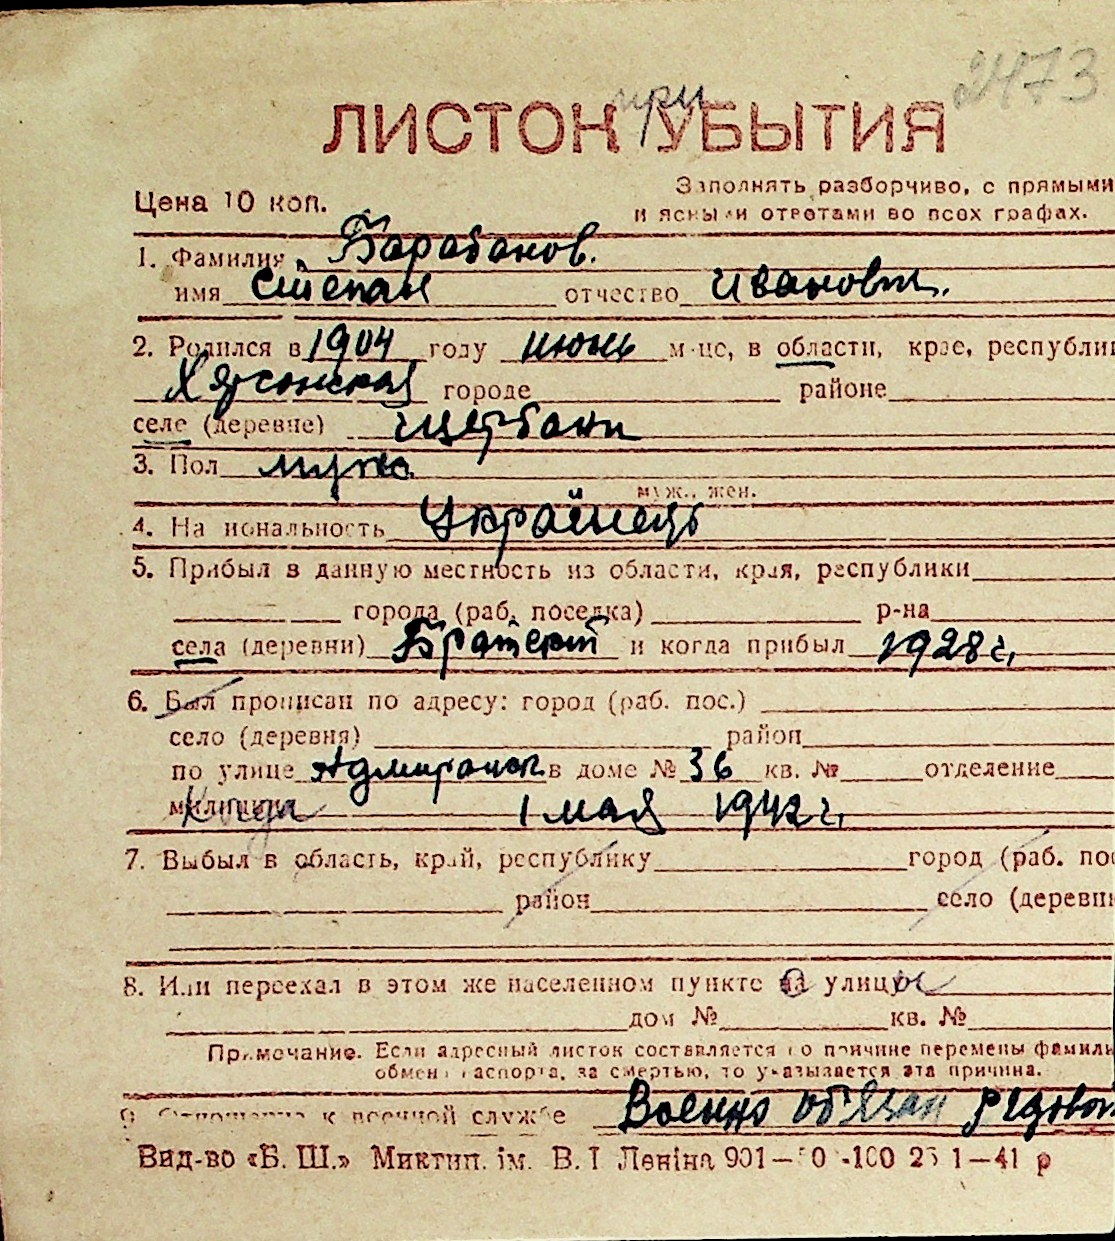 2473
при
ЛИСТОК УБЫТИЯ
Заполнять разборчиво, с прямыми
Цена 10 коп.
и ясными ответами во всех графах.
1. Фамилия Барабанов.
имя Степан отчество Иванович.
2. Родился в 1904 году июнь м-це, в области, крае, республи
Херсонская городе районе
селе (деревне) Щербани
3. Пол мужс
муж., жен.
4. Национальность Украинець
5. Прибыл в данную местность из области, края, республики
города (раб. поселка) р-на
села (деревни) Братский и когда прибыл 1928 г,
6. Был прописан по адресу: город (раб. пос.)
село (деревня) район
по улице Адмиральск. в доме № 36 кв. № отделение
милиции Когда 1 мая 1942 г.
7. Выбыл в область, край, республику город (раб. пос
район село (деревни
8. Или переехал в этом же населенном пункте на улицу
дом № кв. №
Примечание. Если адресный листок составляется по причине перемены фамили
обмена паспорта, за смертью, то указывается эта причина.
9. Отношение к военной службе Военно обязан рядовой
Вид-во «Б. Ш.» Миктип. ім. В. І Леніна 901— 0 -100 2 1—41 р